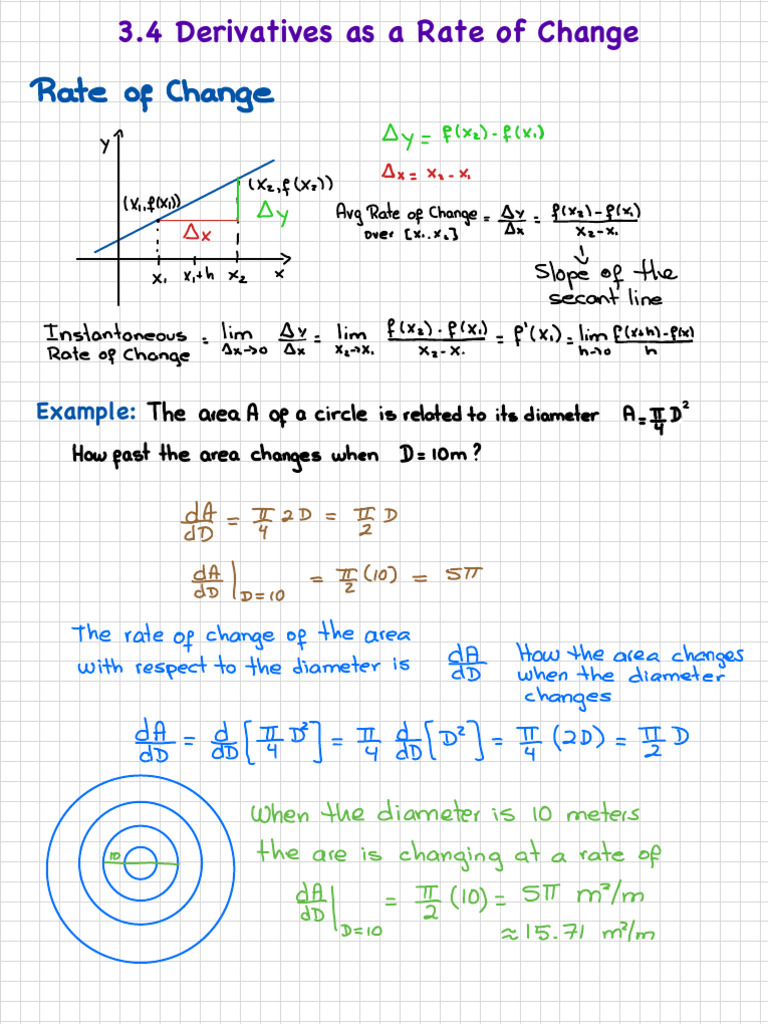 3.4 Derivatives as a Rate of Change
Rate of Change
y
(x₁,f(x₁))
(x₂,f(x₂))
Δy
Δx
x₁ x₁+h x₂ x
Δy = f(x₂)-f(x₁)
Δx = x₂-x₁
Avg Rate of Change = Δy/Δx = (f(x₂)-f(x₁))/(x₂-x₁)
over [x₁..x₂]
↓
Slope of the
secant line
Instantaneous
Rate of Change = lim Δx→0 Δy/Δx = lim x₂→x₁ (f(x₂)-f(x₁))/(x₂-x₁) = f'(x₁) = lim h→0 (f(x+h)-f(x))/h
Example: The area A of a circle is related to its diameter A = π/4 D²
How fast the area changes when D=10m?
dA/dD = π/4 2D = π/2 D
dA/dD |D=10 = π/2 (10) = 5π
The rate of change of the area
with respect to the diameter is
dA/dD
How the area changes
when the diameter
changes
dA/dD = d/dD [π/4 D²] = π/4 d/dD [D²] = π/4 (2D) = π/2 D
10
When the diameter is 10 meters
the are is changing at a rate of
dA/dD |D=10 = π/2 (10) = 5π m²/m
≈15.71 m²/m